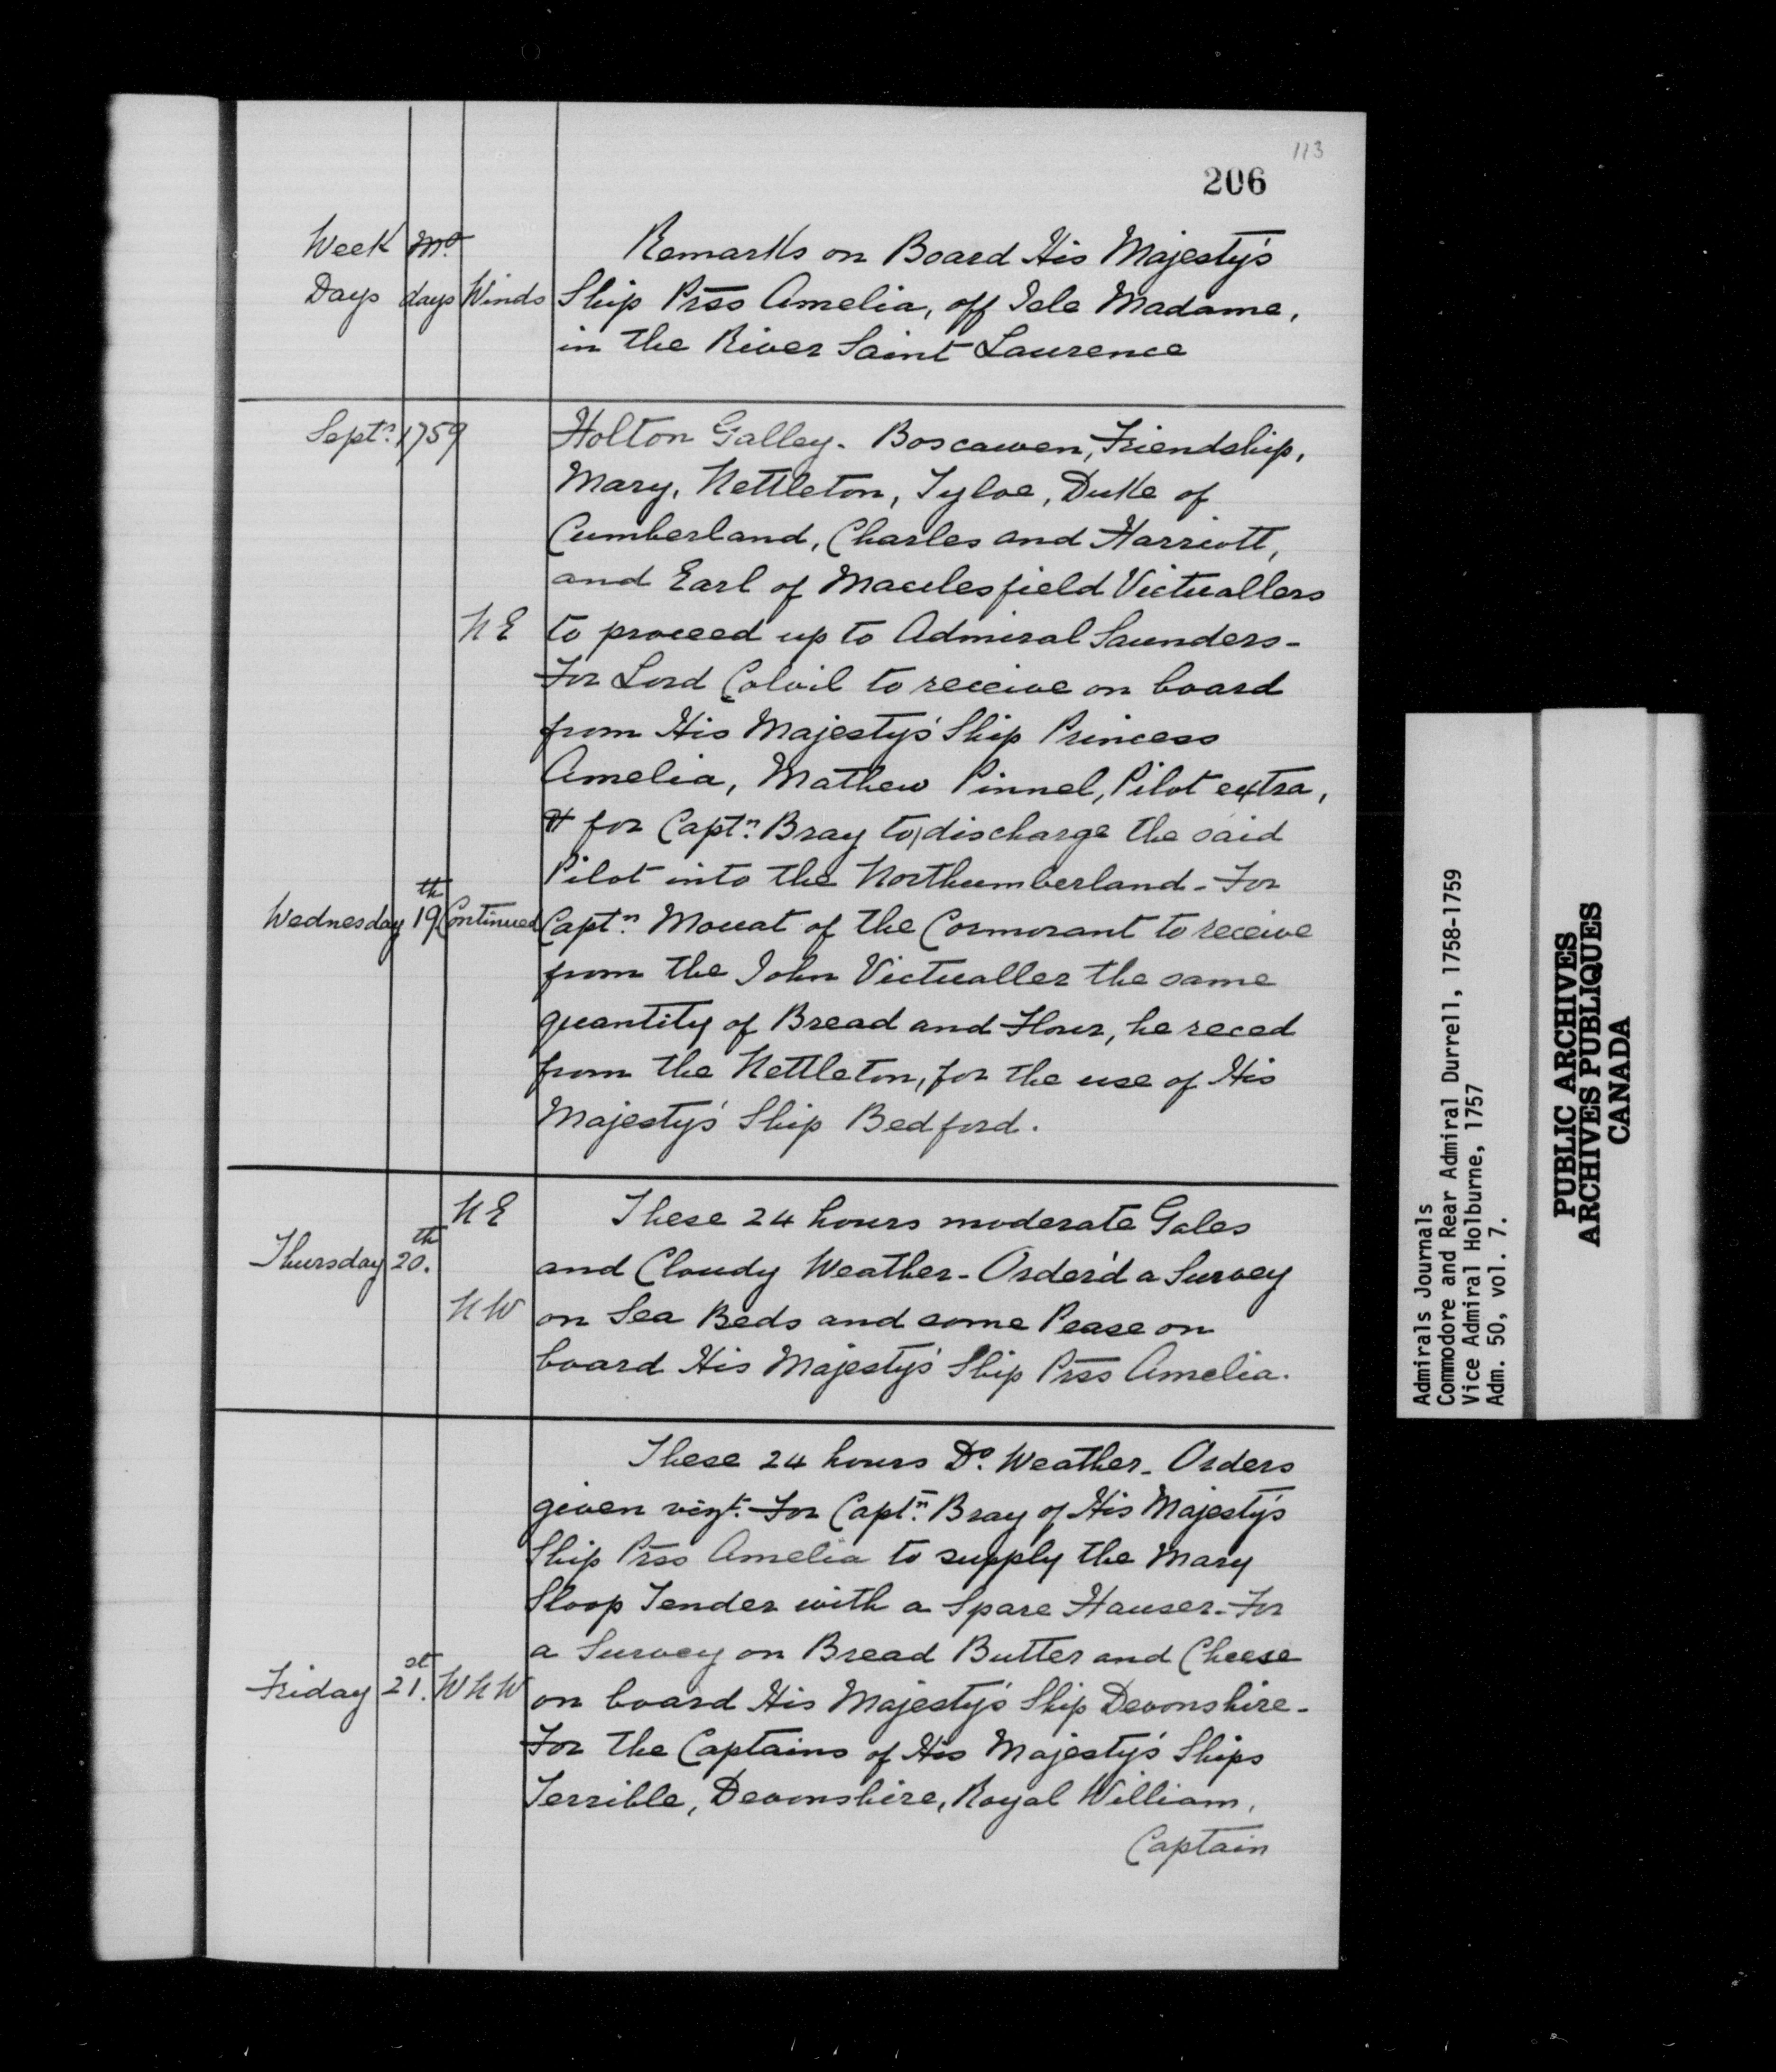 113
206
Week Mo. Remarks on Board His Majesty's
Days days Winds Ship Prss Amelia, off Isle Madame,
in the River Saint Laurence
Septr. 1759 Holton Galley. Boscawen, Friendship,
Mary, Nettleton, Tyloe, Duke of
Cumberland, Charles and Harriott,
and Earl of Macclesfield Victuallers
N E to proceed up to Admiral Saunders -
For Lord Colvil to receive on board
from His Majesty's Ship Princess
Amelia, Mathew Pinnel, Pilot extra,
& for Captn. Bray to discharge the said
Pilot into the Northumberland - For
Wednesday 19th Continued Captn. Mouat of the Cormorant to receive
from the John Victualler the same
quantity of Bread and Flour, he reced
from the Nettleton, for the use of His
Majesty's Ship Bedford.
N E These 24 hours moderate Gales
Thursday 20th. and Cloudy Weather - Order'd a Survey
N W on Sea Beds and some Pease on
board His Majesty's Ship Prss Amelia.
These 24 hours Do. Weather - Orders
given vizt. For Captn. Bray of His Majesty's
Ship Prss Amelia to supply the Mary
Sloop Tender with a Spare Hauser - For
a Survey on Bread Butter and Cheese
Friday 21st. W N W on board His Majesty's Ship Devonshire -
For the Captains of His Majesty's Ships
Terrible, Devonshire, Royal William,
Captain
Admirals Journals
Commodore and Rear Admiral Durrell, 1758-1759
Vice Admiral Holburne, 1757
Adm. 50, vol. 7.
PUBLIC ARCHIVES
ARCHIVES PUBLIQUES
CANADA